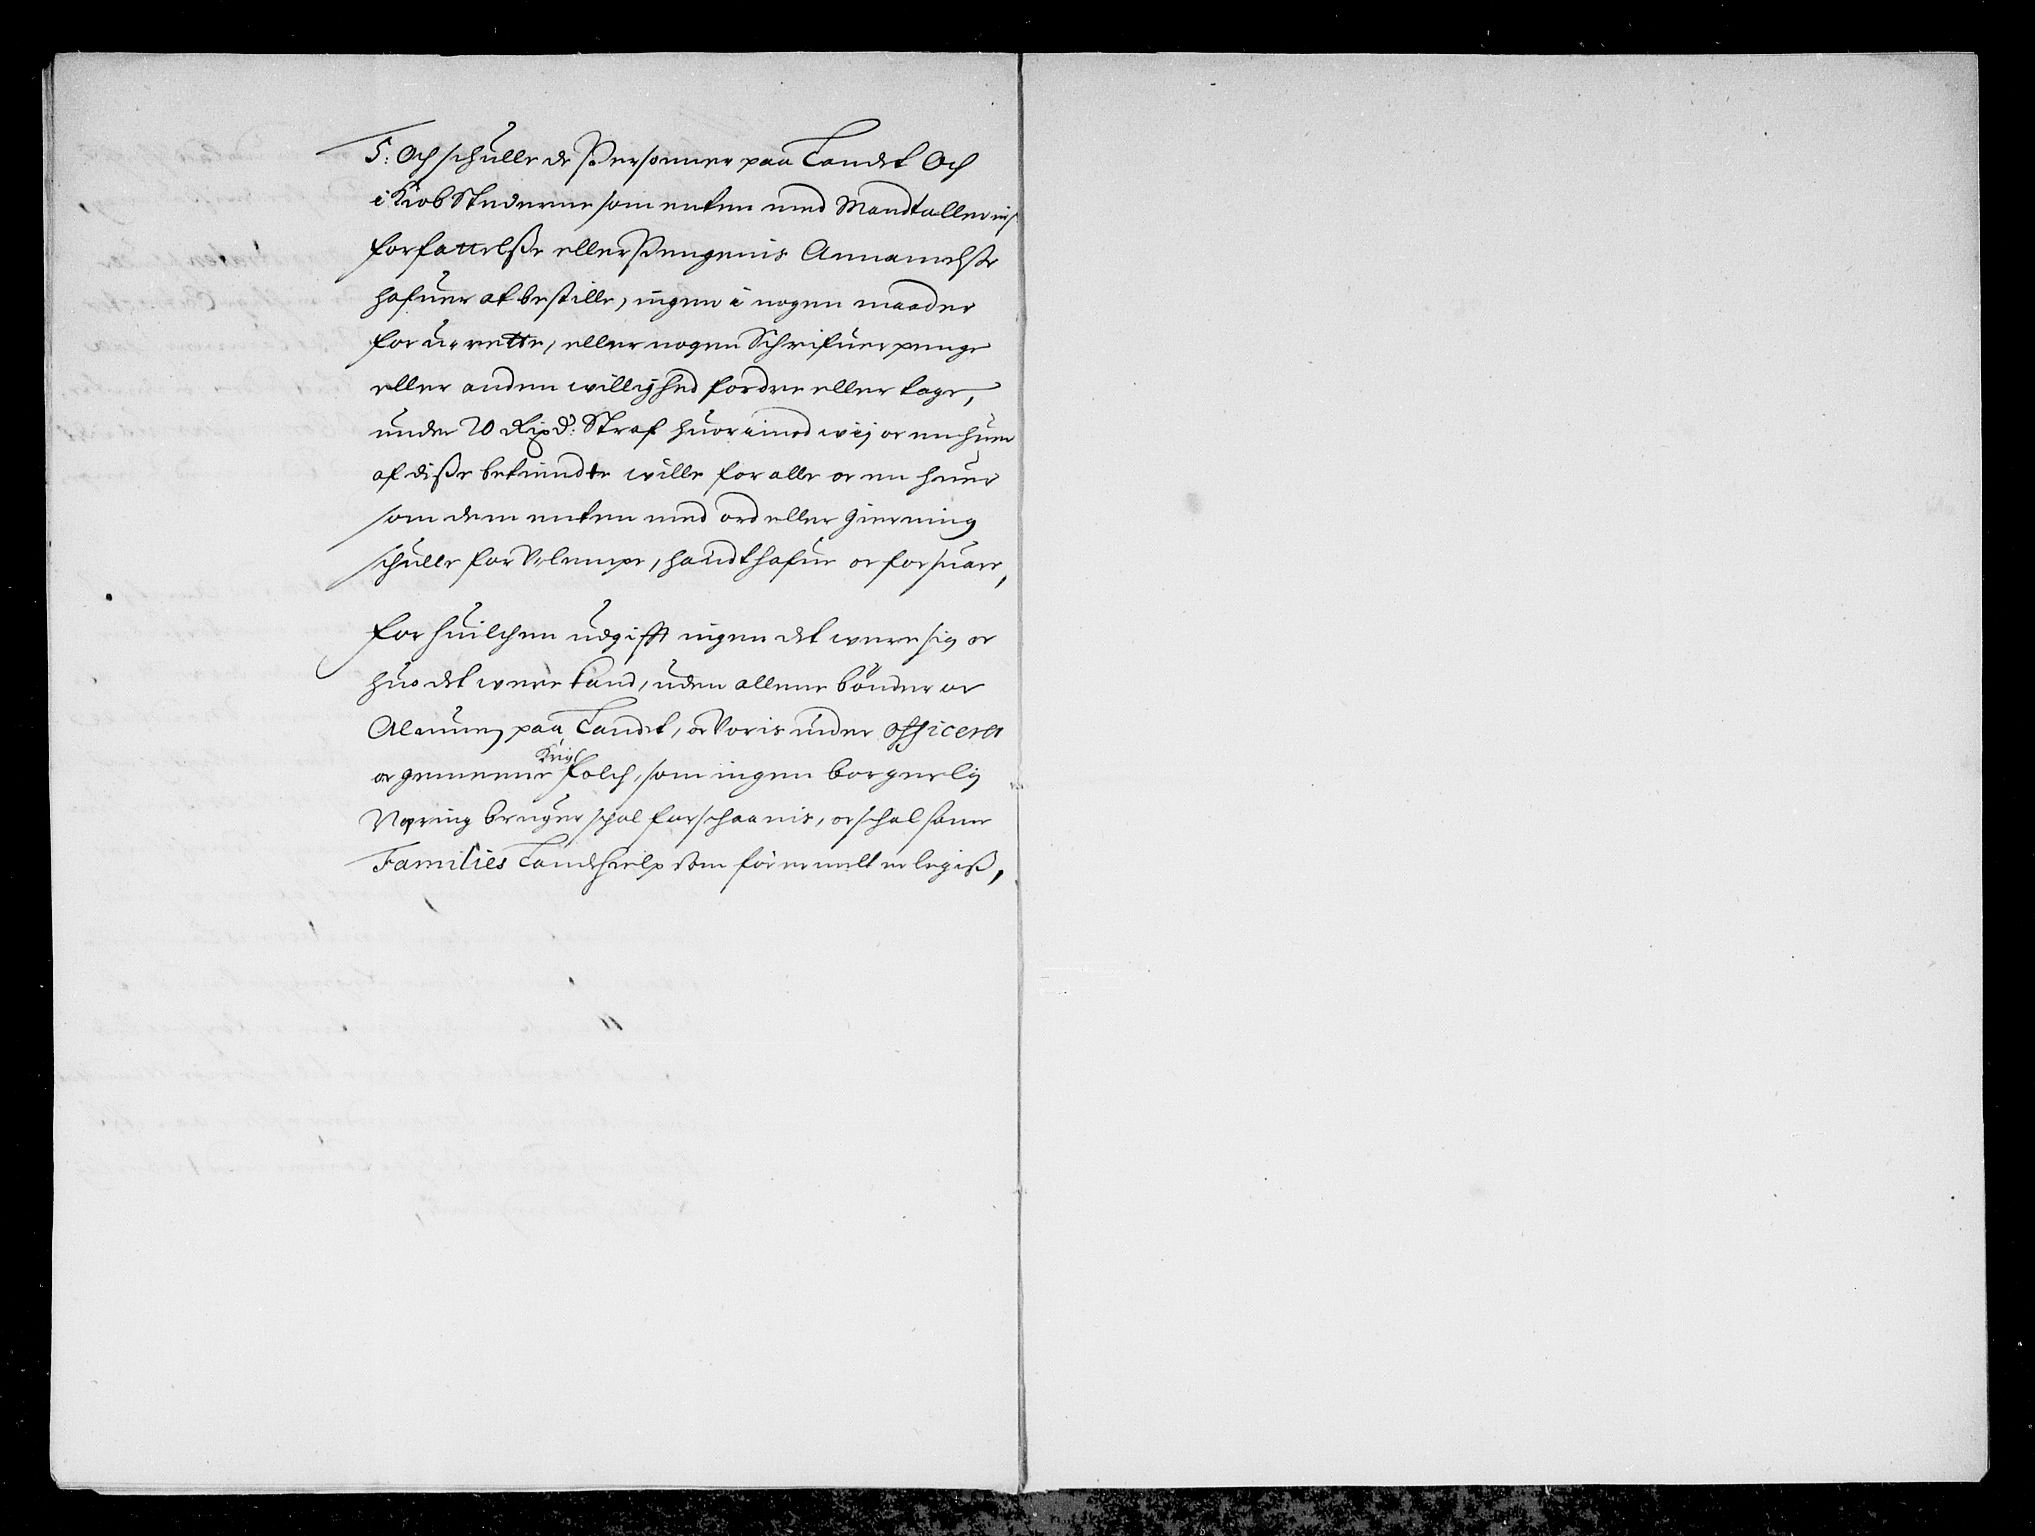 5: Och schulle de Personner paa Landet Och
i Kiøb Stæderne som enten med Mandtallernis
forfattelße eller Pengenis Annamelße
hafuer at bestille, ingen i nogen maader
for u-rette, eller nogen Schrifuer penge
eller anden willighed fordre eller tage,
under 20 Rixd: Straf huor imod wij oc en huer
af disse betiendte wille for alle oc en huer
som dem enten med ord eller gierning
schulle for Vlempe, handthafue oc forsuare,
for huilchen udgifft ingen det were sig oc
huo det were kand, uden allene bönder oc
Almuen paa Landet, oc Voris under officerer
oc gemeene Krigs folch, som ingen borgerlig
Næring bruger schal forschaanis, oc schal samme
Families Landhielp som för er melt erleggis,